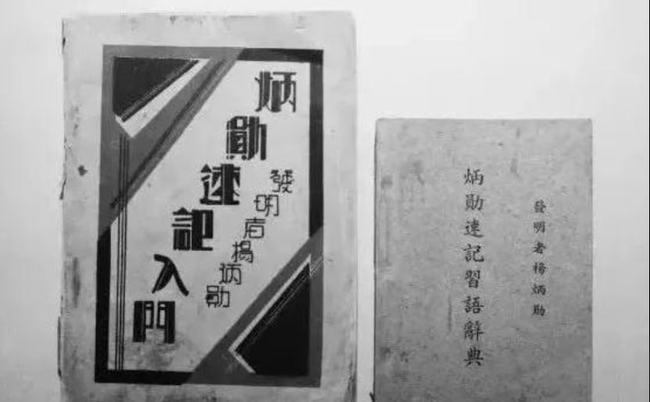 炳勛速記入門
發明者楊炳勛
發明者楊炳勛
炳勛速記習語辭典